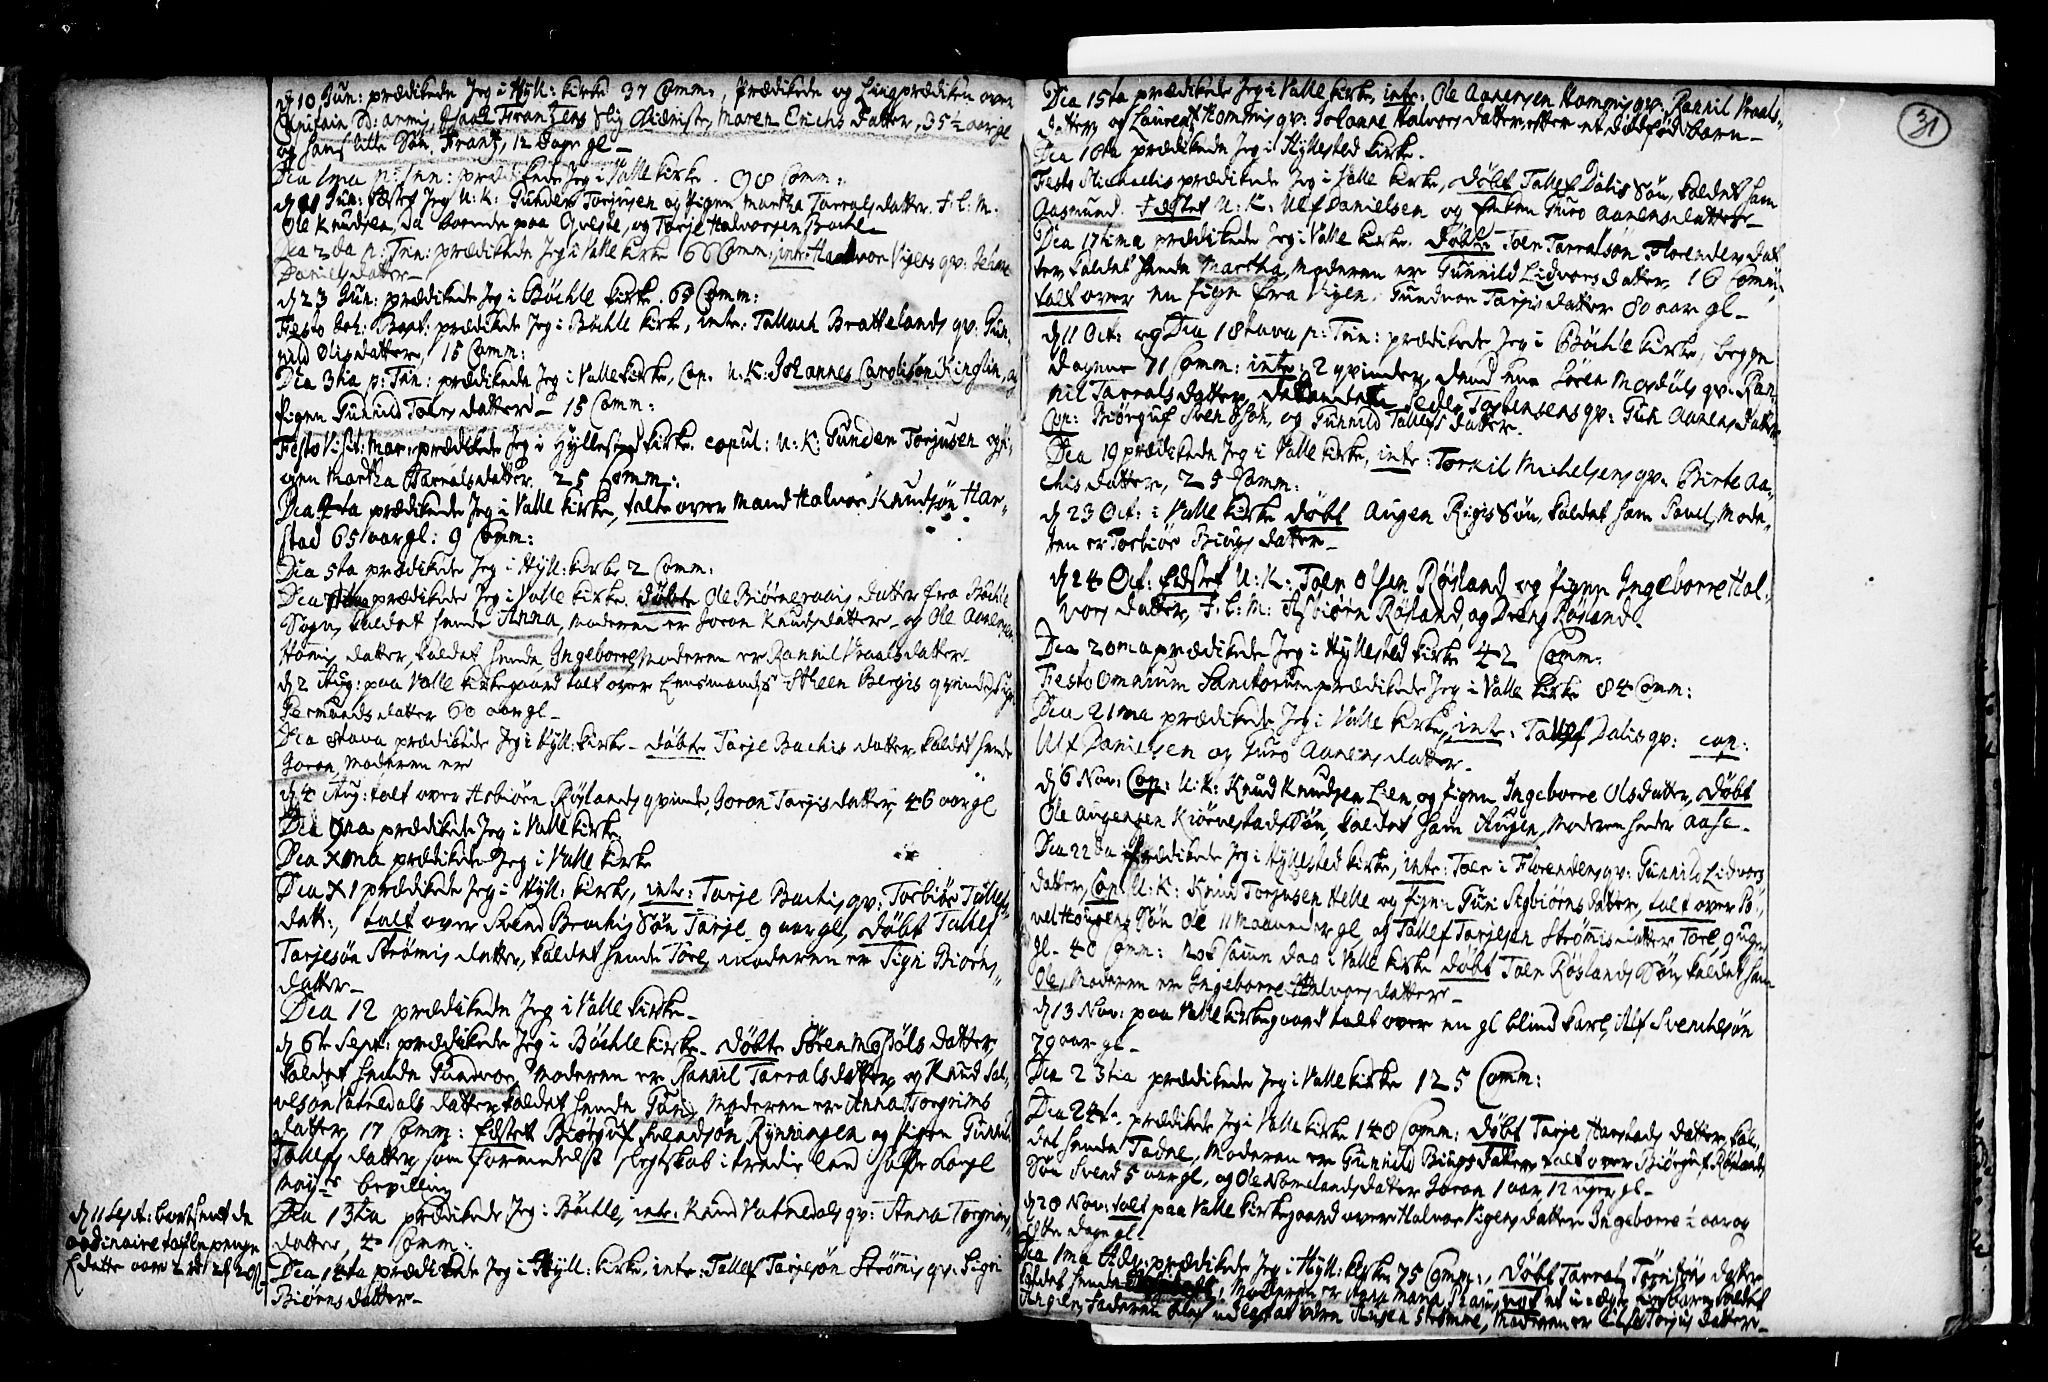 d 10 Jun: prædikede Jeg i Hyll: kirke 37 Comm:, Prædikede og Liigprædiken over
Capitain d: armis, Frantzens Slig Maren Erichs Datter, 35½ aar gl
og hans lille Søn, Frantz, 12 Dage gl –
Dia 1ma p: Trin: prædikede Jeg i Valle kirke. 98 Comm:
Jun: fæstet Jeg U: K: Gunder Torjusen og Pigen Martha Tarralsdatter. F. C. M.
Ole Knudsen, da boende paa Qveste, og Tarje Halvorsen Bachle
Dia 2da p: Trin: prædikede Jeg i Valle kirke 66 Comm:, intr: Halvor Vigens qv:
Danielsdatter –
d 23 Jun: prædikede Jeg i Bøchle kirke. 63 Comm:
Festo Joh: Bapt: prædikede Jeg i Bøchle kirke, intr: Tallach Brattelands qv: Gun-
nild Olis datter, 15 Comm:
Dia 3tia p: Trin: prædikede Jeg i Valle kirke, Cop. U: K: Johannes Carolisøn Kinglin, og
Pigen Gunnild Toresdatter – 15 Comm:
Festo Visit: Mar: prædikede Jeg i Hyllested kirke. copul: U: K: Gunder Torjusen og Pi-
gen Martha Tarralsdatter. 25 Comm:
Dia 4ta prædikede Jeg i Valle kirke, talte over Mand Halvor Knudsøn Har-
stad 65 aar gl: 9 Comm:
Dia 5ta prædikede Jeg i Hyll: kirke 2 Comm:
Dia prædikede Jeg i Valle kirke. døbte Ole Biørnevaais datter fra Bøchle
Sogn, kaldet hende Anna, Moderen er Joron Knudsdatter – og Ole Aanersen
Homis datter, kaldet hende Ingeborre, Moderen er Rannil Vraalsdatter –
d 2 Aug: paa Valle kirkegaard talt over Stheen Bergis qvinde,
Germundsdatter 60 aar gl –
Dia 8tava prædikede Jeg i Hyll: kirke – døbte Tarje Bachis datter kaldet hende
Joron, Moderen er
d 4 Aug: talt over Asbiørn Røislands qvinde, Joron Tarjisdatter, 46 aar gl
Dia 9na prædikede Jeg i Valle kirke
Dia Xma prædikede Jeg i Valle kirke
Dia XI prædikede Jeg i Hyll: kirke, intr: Tarje Bachis qv: Torbiør Tallefs-
datt:, talt over Svend Brochis Søn Tarje, 9 aar gl, døbt Tallef
Tarjesøn Strømis datter, kaldet hende Tore, moderen er Sigri Biørns-
datter –
Dia 12 prædikede Jeg i Valle kirke –
d 6te Sept: prædikede Jeg i Bøchle kirke – døbte Søren Mosdøls datter,
kaldet hende Gundvor, Moderen er Rannil Tarralsdatter, og Knud Sal-
veson Vatnedals datter, kaldet hende Guri, Moderen er Anna Torgrims
datter, 17 Comm: fæstet Biørguf Svendsøn Rynningen og Pigen Gunnil
Tallefs datter, som formedelst slegtskab i tredie leed
May:ts bevilling
Dia 13tia prædikede Jeg i Bøchle, intr: Knud Vatnedals qv: Anna Torgrims-
datter, 4 Comm:
Dia 14ta prædikede Jeg i Hyll: kirke, intr: Tallef Tarjesøn Strømis qv: Sigri
Biørnsdatter –
d 11 Sept: bortsendt de
ordinaire
31
Dia 15ta prædikede Jeg i Valle kirke, intr: Ole Aanersen Hommis qv: Rannil Vraals-
datter, og Laurent Hommis qv: Johanne Halvorsdatter efter et dødfød barn –
Dia 16ta prædikede Jeg i Hyllested kirke.
Festo Michaelis prædikede Jeg i Valle kirke, døbt Tallef Dalis Søn, kaldet ham
Aasmund. Fæstet U: K: Ulf Danielsen og Enken Guro Aanensdatter –
Dia 17tima prædikede Jeg i Valle kirke. Døbt Toer Tarralsøn Florendes dat-
ter, kaldet hende Martha, Moderen er Gunnild Lidvorsdatter, 16 Comm:
talt over en Pige fra Vigen, Gundvor Tarjisdatter 80 aar gl –
d 11 Oct: og Dia 18tava p: Trin: prædikede Jeg i Bøchle kirke, begge
dagene 71 Comm: intr: 2 qvinder, dend ene Søren Mosdøls qv: Ran-
nil Tarralsdatter, den anden Peder Torkensens qv: Gun Aanensdatter
Cop: Biørguf Svendsøn, og Gunnild Tallefs datter.
Dia 19 prædikede Jeg i Valle kirke, intr: Torkil Michelsens qv: Birte Aa-
chisdatter, 29 Comm:
d 23 Oct: i Valle kirke døbt Augen Rigis Søn, kaldet ham Povel, Mode-
ren er Torbiør Biugs datter –
d 24 Oct: Fæstet U: K: Toer Olsen Røisland og Pigen Ingeborre Hal-
vors datter, F: C: M: Asbiørn Røisland, og Dreng Røisland.
Dia 20ma prædikede Jeg i Hyllested kirke 42 Comm:
Festo Omnium Sanctorum prædikede Jeg i Valle kirke 84 Comm:
Dia 21ma prædikede Jeg i Valle kirke, intr: Tallef Dalis qv: cop:
Ulf Danielsen og Guro Aanensdatter.
d 6 Nov: Cop: U: K: Knud Knudsen Lien, og Pigen Ingeborre Olsdatter, Døbt
Ole Augensen Kiørvestads Søn, kaldet ham Augen, Moderen heder Aase –
Dia 22da prædikede Jeg i Hyllested kirke, intr: Toer i Florendes qv: Gunnild Lidvors
datter, Cop: U: K: Knud Torjusen Helle og Pigen Guri Sigbiørnsdatter, talt over Po-
vel Homens Søn Ole 11 Maaneder gl, og Tallef Tarjesen Strømis datter Tore, 9 uger
gl – 40 Comm: Nok samme dag i Valle kirke døbt Toer Røislands Søn, kaldet ham
Ole, Moderen er Ingeborre Halvorsdatter –
d 13 Nov: paa Valle kirkegaard talt over en gl blind karl, Alf Svenchesøn
79 aar gl –
Dia 23tia prædikede Jeg i Valle kirke 125 Comm:
Dia 24ta prædikede Jeg i Valle kirke 148 Comm: døbt Tarje Harstads datter, kal-
det hende Tadne, Moderen er Gunnild Biugsdatter, talt over Biørguf Røislands
Søn Svend 5 aar gl, og Ole Nomelands datter Joron 1 aar 12 uger gl –
d 20 Nov: talt paa Valle kirkegaard over Halvor Vigens datter Ingeborre 1 aar og
dage gl.
Dia 1ma Adv: prædikede Jeg i Hyll: kirke 75 Comm:, Døbt Tarral datter
kaldet hende Moderen er Anna Maria,
Strømme, Moderen er Torjus datter –